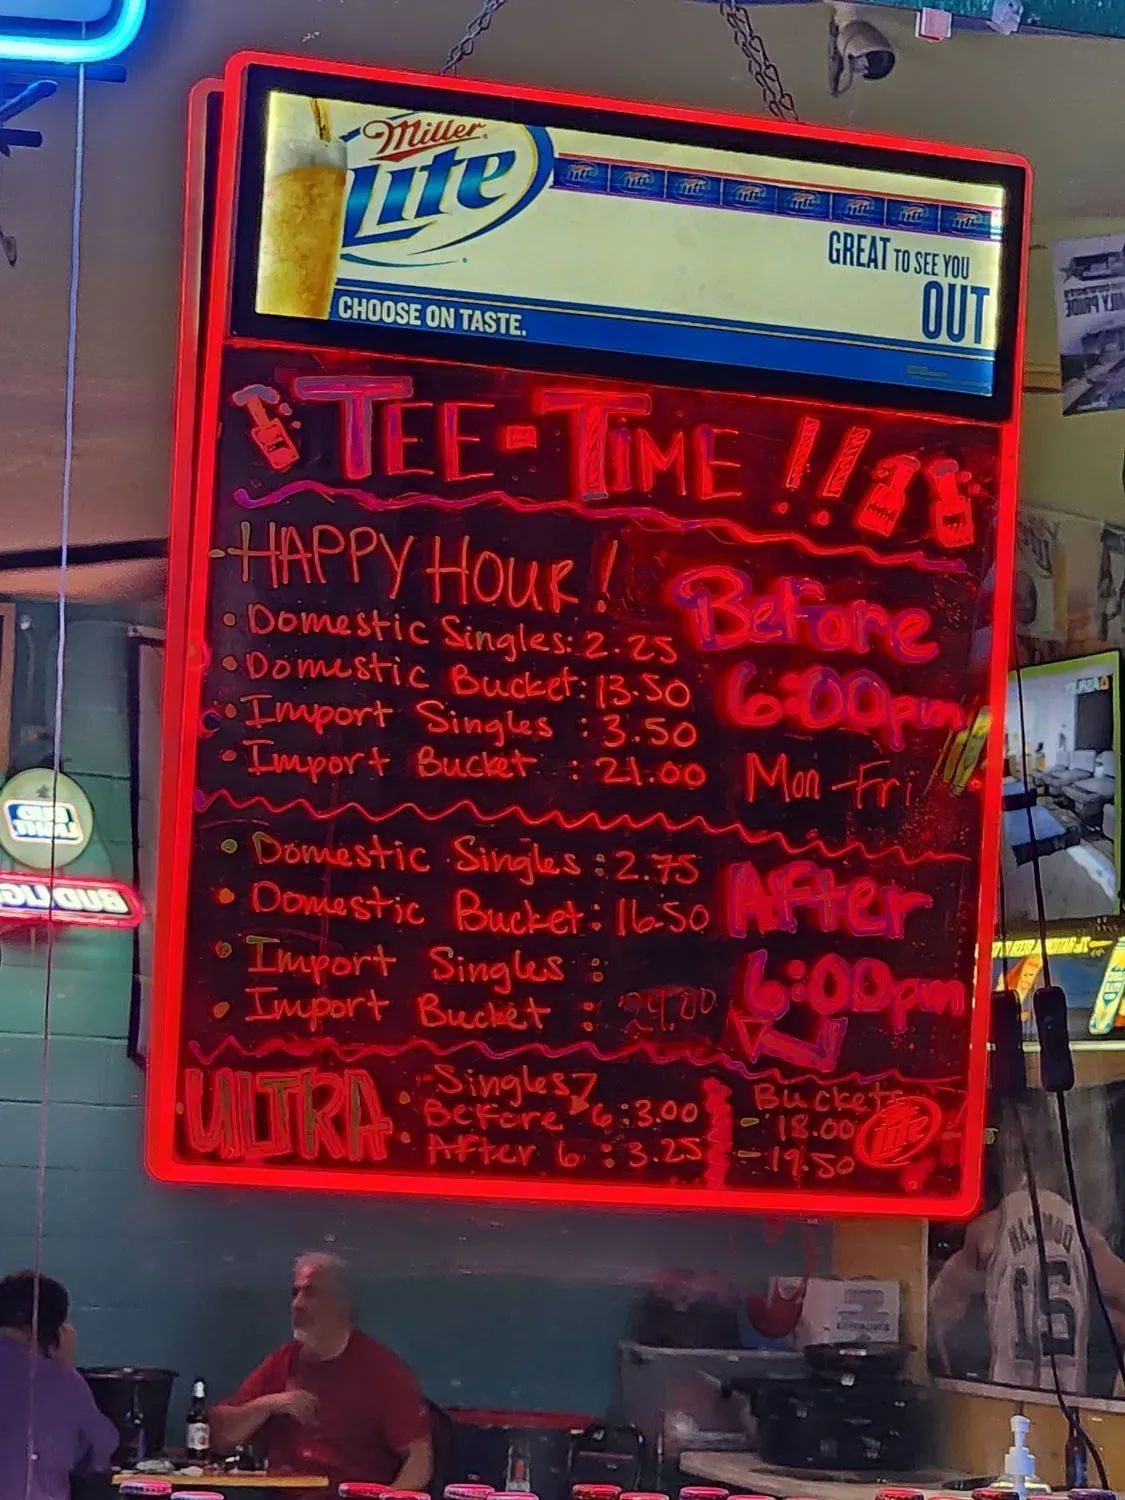 Miller
Lite
GREAT TO SEE YOU
OUT
CHOOSE ON TASTE.
TEE-TIME!!
HAPPY HOUR!
• Domestic Singles: 2.25
• Domestic Bucket: 13.50
• Import Singles : 3.50
• Import Bucket : 21.00
Before
6:00pm
Mon-Fri
• Domestic Singles: 2.75
• Domestic Bucket: 16.50
• Import Singles :
• Import Bucket : 24.00
After
6:00pm
ULTRA
Singles
Before 6: 3.00
After 6 : 3.25
Buckets
- 18.00
- 19.50
Lite
BUD
LIGHT
BUD LIG